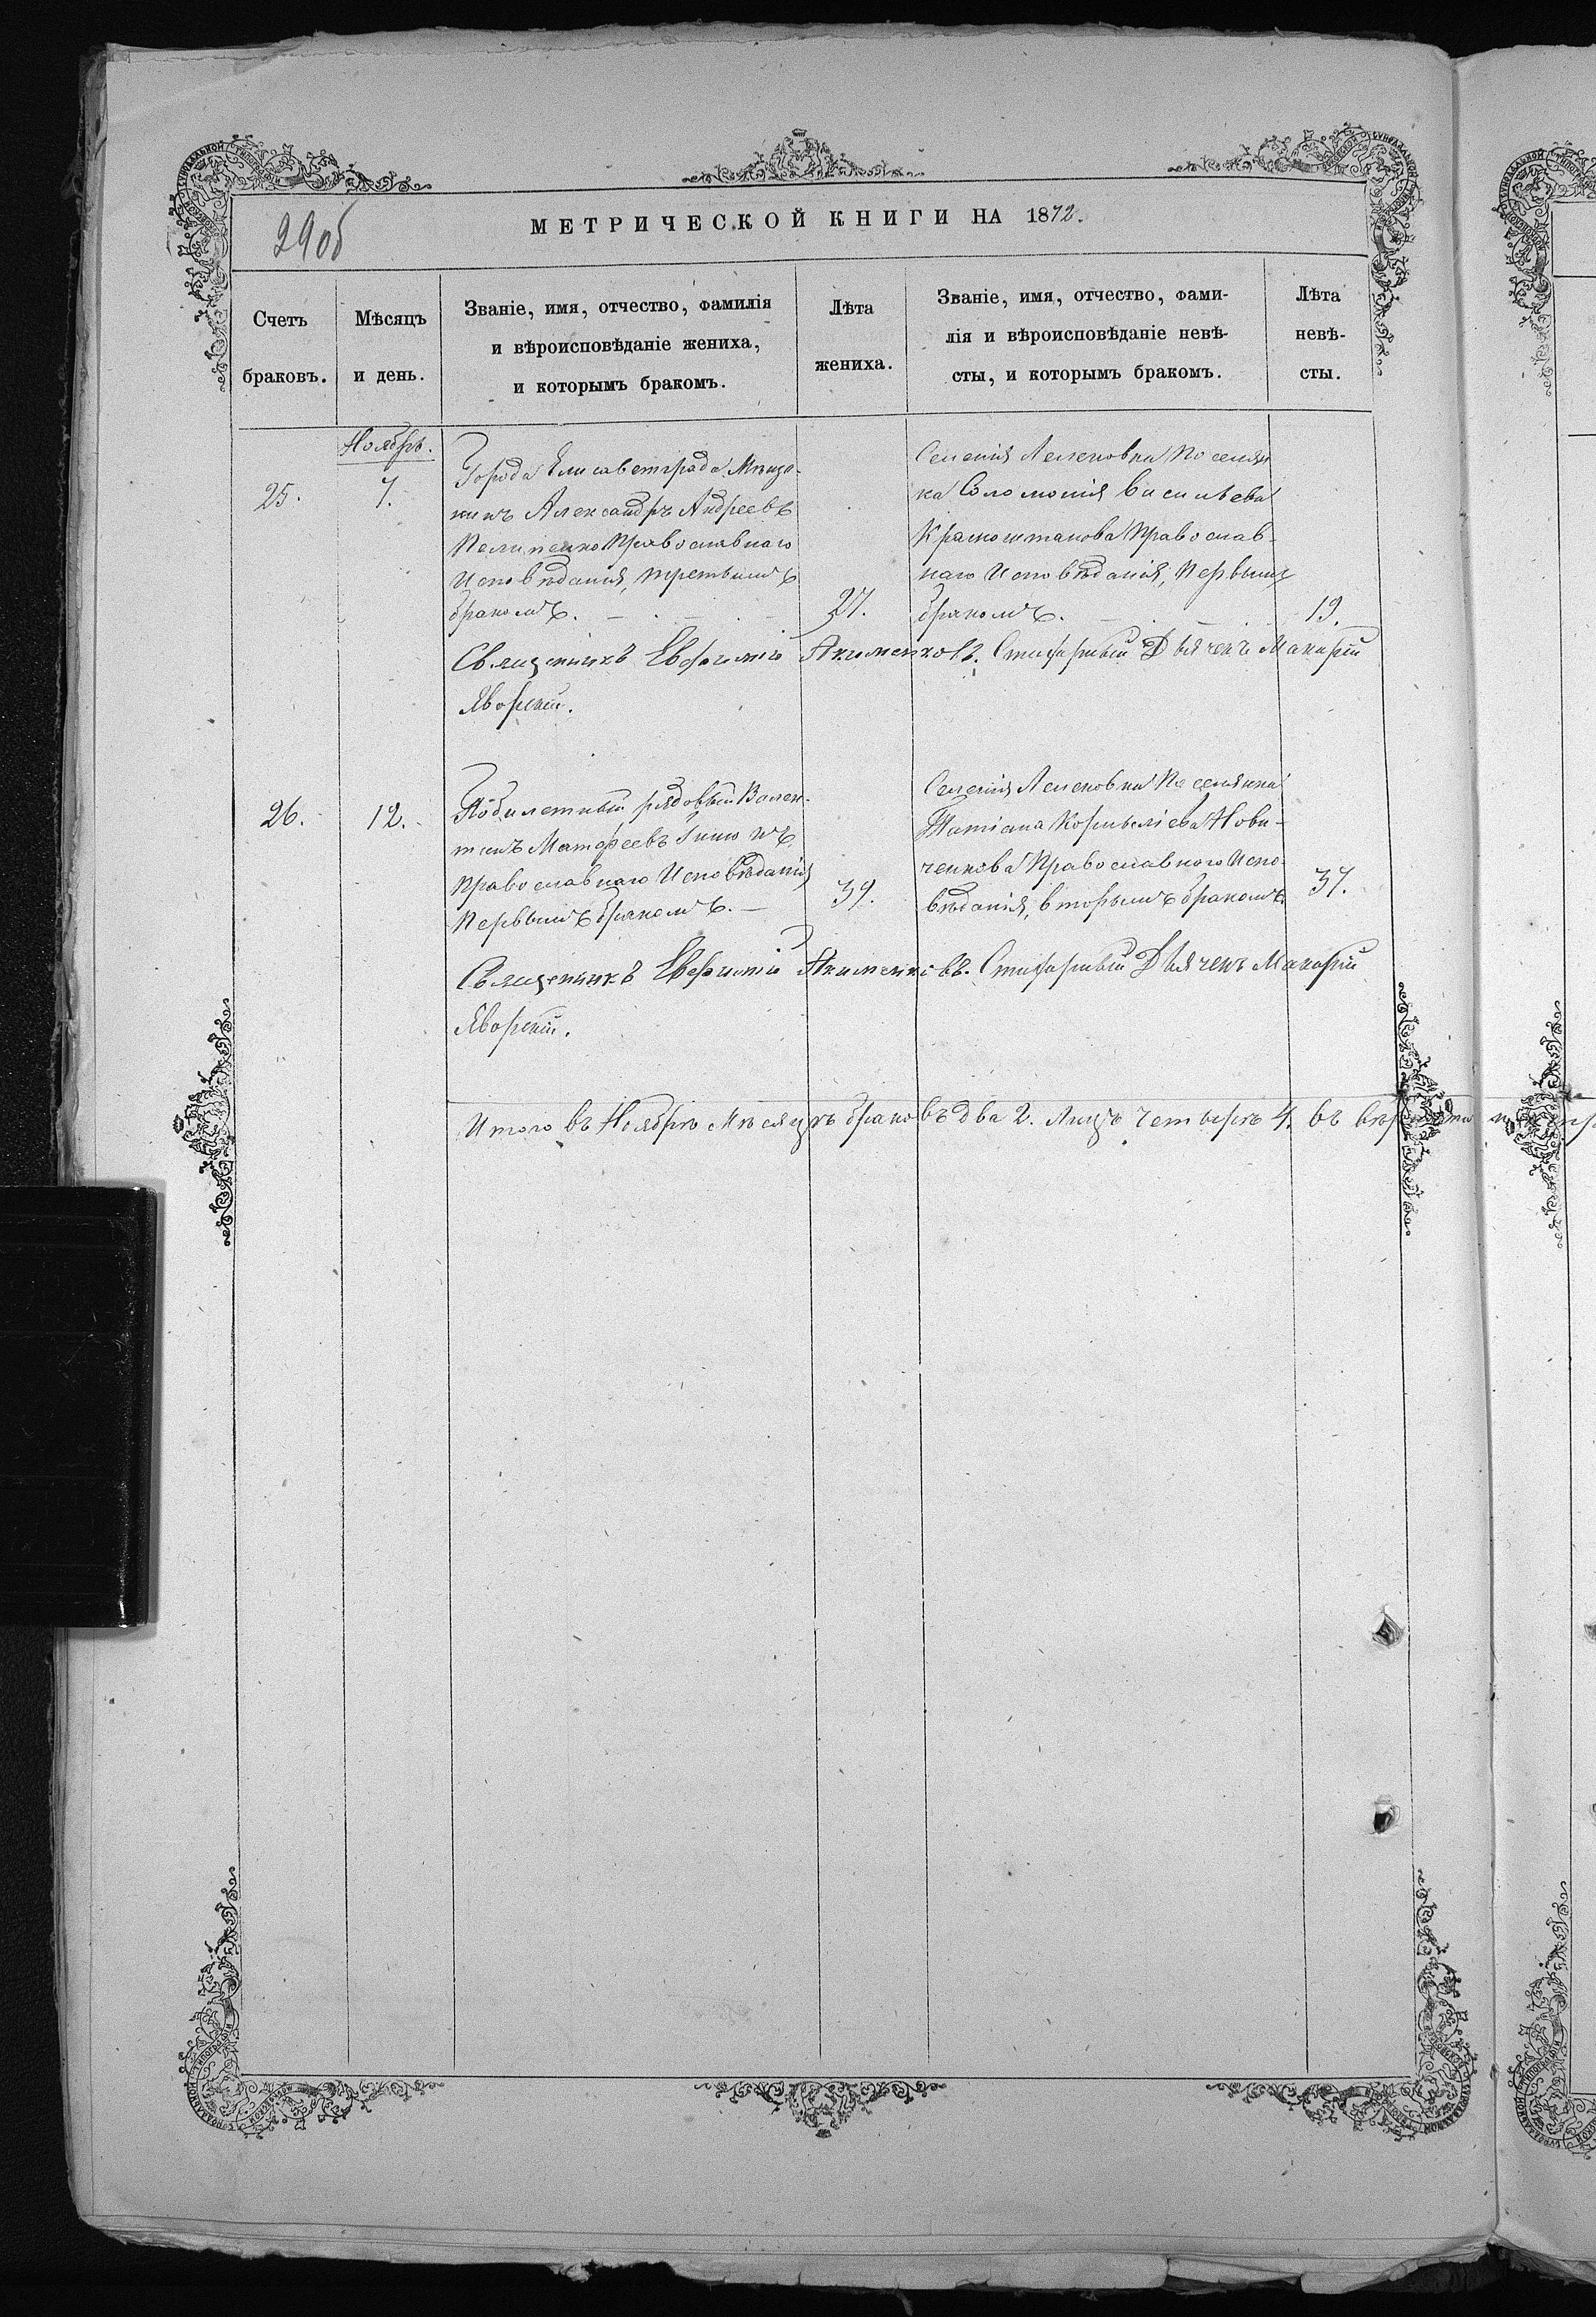 290б
МЕТРИЧЕСКОЙ КНИГИ НА 1872.
Счетъ
браковъ.
Мѣсяцъ
и день.
Званіе, имя, отчество, фамилія
и вѣроисповѣданіе жениха,
и которымъ бракомъ.
Лѣта
жениха.
Званіе, имя, отчество, фами-
лія и вѣроисповѣданіе невѣ-
сты, и которымъ бракомъ.
Лѣта
невѣ-
сты.
Ноябрь.
25.
7.
Города Елисаветграда Мѣща-
нинъ Александръ Андреевъ
Пелипенко Православнаго
Исповѣданія, третьимъ
бракомъ.
27.
Селенія Лелековки Поселян
ка Соломонія Васильева
Православ-
наго Исповѣданія, Первымъ
бракомъ.
19.
Священникъ Евфимій Акименковъ. Стихарный Дьячекъ Макарій
Яворскій.
26.
12.
Безсрочно билетный рядовый Вален-
тинъ Матфеевъ
Православнаго Исповѣданія
Первымъ бракомъ.
39.
Селенія Лелековки Поселянка
Татіана Корниліева Нови-
ченкова Православнаго Испо-
вѣданія, вторымъ бракомъ.
37.
Священникъ Евфимій Акименковъ. Стихарный Дьячекъ Макарій
Яворскій.
Итого въ Ноябрѣ Мѣсяцѣ браковъ два 2. Лицъ четыре 4. въ